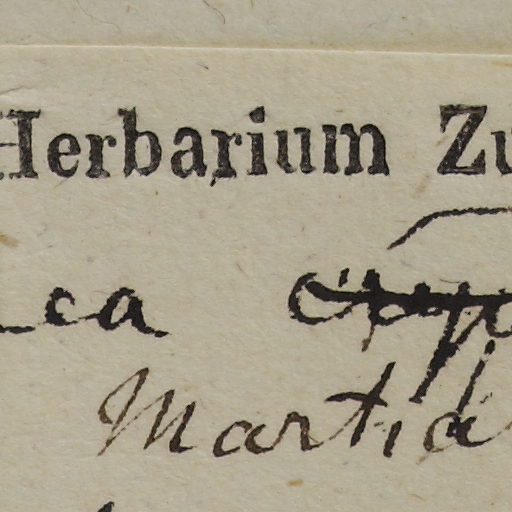 Herbarium Zu
ca
Martia